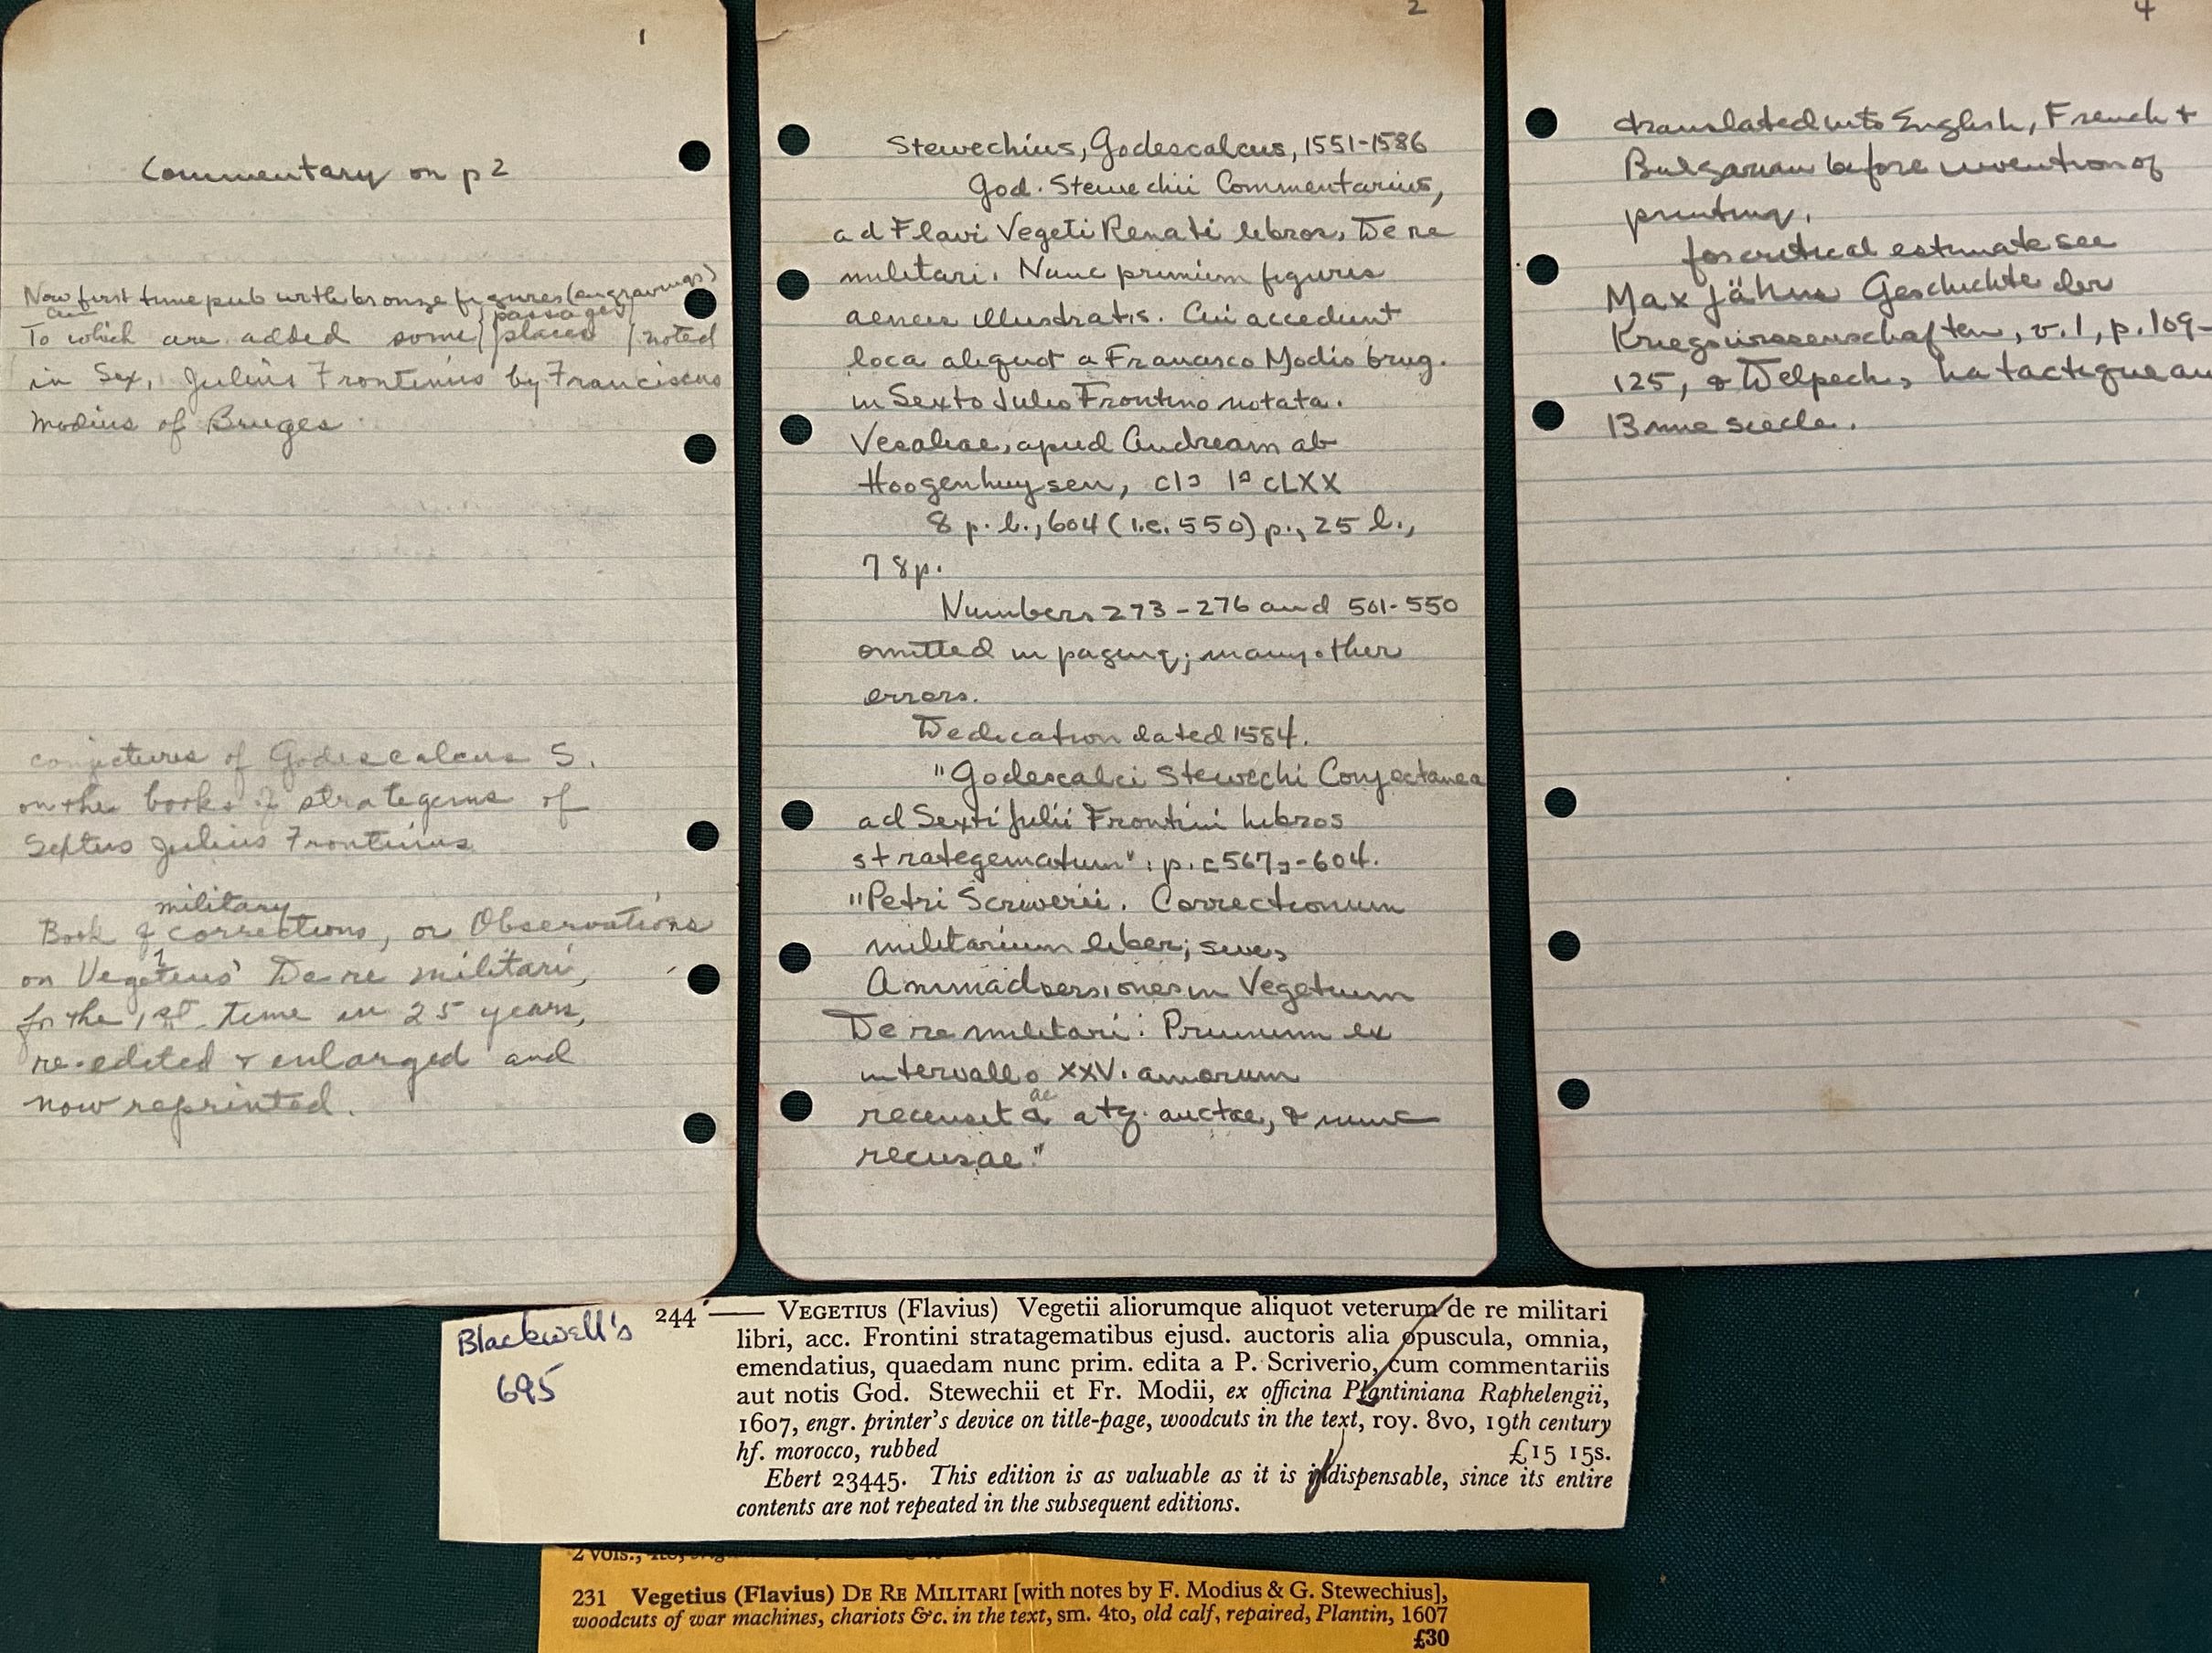 1
Commentary on p 2
Now first time pub with bronze figures (engravings)
passages
To which are added some places noted
in Sex. Julius Frontinus by Franciscus
Modius of Bruges
conjectures of Godescalcus S.
on the books of strategems of
Septus Julius Frontinius
military
Book of corrections, or Observations
on Vegetius' De re militari,
for the 1st time in 25 years,
re-edited & enlarged and
now reprinted.
2
Stewechius, Godescalcus, 1551-1586
God. Stewechii Commentarius,
ad Flavi Vegeti Renati libros, De re
militari. Nunc primum figuris
aeneis illustratis. Cui accedunt
loca aliquot a Francisco Modio brug.
in Sexto Julio Frontino notata.
Vesaliae, apud Andream ab
Hoogenhuysen, cIɔ Iɔ cLXX
8 p. l., 604 (i.e. 550) p., 25 l.,
78p.
Numbers 273-276 and 501-550
omitted in paging; many other
errors.
Dedication dated 1584.
"Godescalci Stewechi Conjectanea
ad Sexti Julii Frontini libros
strategematum": p. [567]-604.
"Petri Scriverii. Correctionum
militarium liber; sive,
Animadversiones in Vegetium
De re militari: Primum ex
intervallo XXV. annorum
ae
recensita atq. auctae, & nunc
recusae."
4
translated into English, French &
Bulgarian before invention of
printing.
for critical estimate see
Max Jähns Geschichte der
Kriegswissenschaften, v. 1, p. 109-
125, & Delpech, La tactique au
13me siecle.
Blackwell's
695
244 —— VEGETIUS (Flavius) Vegetii aliorumque aliquot veterum de re militari
libri, acc. Frontini stratagematibus ejusd. auctoris alia opuscula, omnia,
emendatius, quaedam nunc prim. edita a P. Scriverio, cum commentariis
aut notis God. Stewechii et Fr. Modii, ex officina Plantiniana Raphelengii,
1607, engr. printer's device on title-page, woodcuts in the text, roy. 8vo, 19th century
hf. morocco, rubbed £15 15s.
Ebert 23445. This edition is as valuable as it is indispensable, since its entire
contents are not repeated in the subsequent editions.
2 vols., 4to,
231 Vegetius (Flavius) DE RE MILITARI [with notes by F. Modius & G. Stewechius],
woodcuts of war machines, chariots &c. in the text, sm. 4to, old calf, repaired, Plantin, 1607
£30